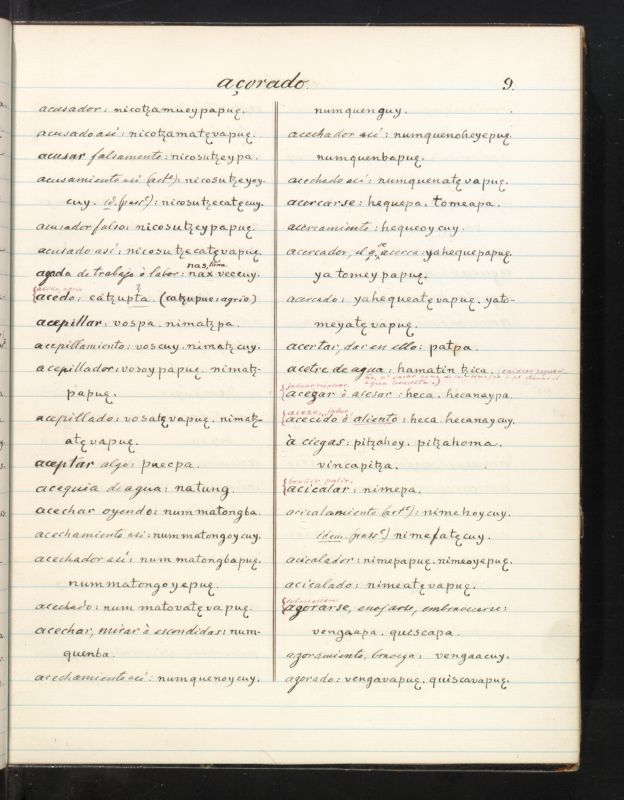 açorado.
9.
acusador: nicotzamueypapuę.
acusado así: nicotzamatęvapuę.
acusar falsamente: nicosutzeypa.
acusamiento así (act.e): nicosutzeyoy-
cuy. id. (pas.e): nicosutzecatęcuy.
acusador falso: nicosutzeypapuę.
acusado así: nicosutzecatęvapuę.
nas,
agada de trabajo ò labor: nax veecuy.
acedo: catzupta. (catzupue: agrio.)
acepillar: vospa. nimatzpa.
acepillamiento: voscuy. nimatzcuy.
acepillador: vosoypapuę. nimatz-
papuę.
acepillado: vosatęvapuę. nimatz-
atęvapuę.
aceptar algo: puecpa.
acequia de agua: natung.
acechar oyendo: nummatongba.
acechamiento así: nummatongoycuy.
acechador así: nummatongbapuę.
nummatongoyepuę.
acechado: num matovatęvapuę.
acechar, mirar ò escondidas: num-
quenba.
acechamiento así: numquenoycuy.
numquenguy.
acechador así: numquenoheyepuę.
numquenbapuę.
acechado así: numquenatęvapuę.
acercarse: hequepa. tomeapa.
acercamiento: hequeoycuy.
acercador, el q.e se acerca: yahequepapuę.
yatomeypapuę.
acercado: yahequeatęvapuę. yato-
meyatęvapuę.
acertar, dar en ello: patpa.
acetre de agua: hamatin tzica.
jadear respirar.
acegar ò acesar: heca. hecanaypa.
acezo, jadeo.
acecido ò aliento: heca. hecanaycuy.
à ciegas: pitzahoy. pitzahoma.
vincapitza.
bruñir pulir.
acicalar: nimepa.
acicalamiento (act.e): nimehoycuy.
idem. (pas.e) nimefatęcuy.
acicalador: nimepapuę. nimeoyepuę.
acicalado: nimeatęvapuę.
agorarse, enojarse, embravecerse:
vengaapa. quiscapa.
azoramiento, braveza: vengaacuy.
azorado: vengavapuę. quiscavapuę.